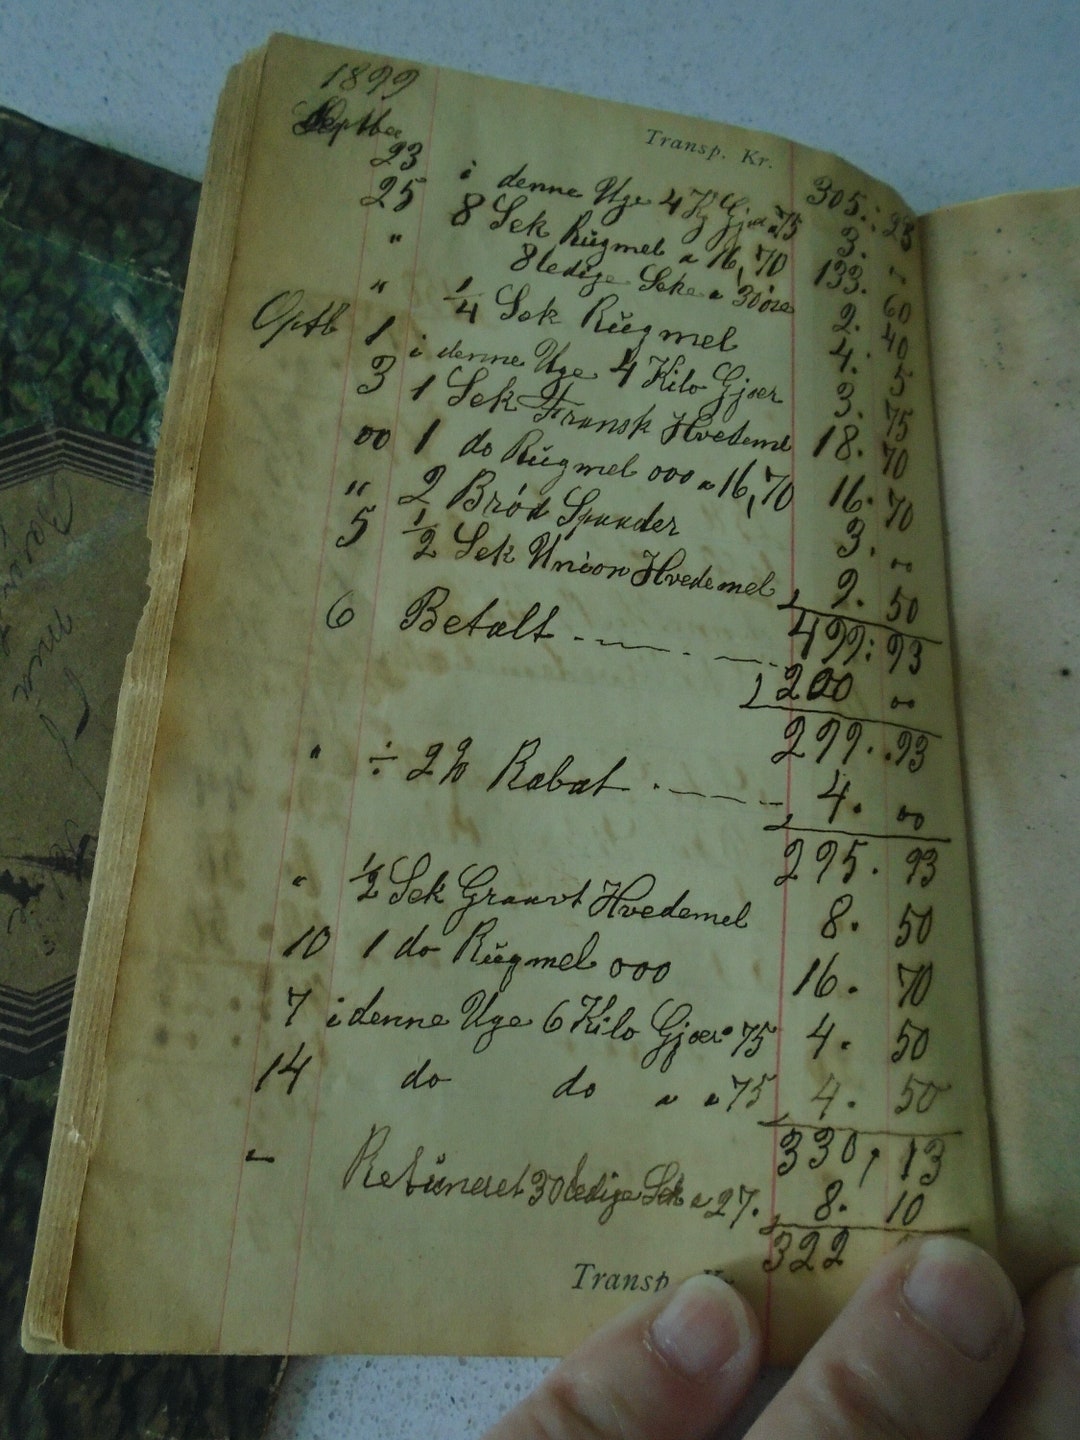 1899
Septbe
Transp. Kr. 305. 23
23 i denne Uge 4 Kg Gjær a 75 3. "
25 8 Sek Rŭgmel a 16,70 133. 60
" 8 ledige Seke a 30 øre 2. 40
" 1/4 Sek Rŭgmel 4. 5
Optb 1 i denne Uge 4 Kilo Gjær 3. 75
3 1 Sek Fransk Hvedeml 18. 70
" 1 do Rŭgmel 000 a 16,70 16. 70
" 2 Brød Spaader 3. "
5 1/2 Sek Union Hvedemel 9. 50
499: 93
6 Betalt 200 "
299. 93
" ÷ 2% Rabat 4. "
295. 93
" 1/2 Sek Graavt Hvedemel 8. 50
10 1 do Rŭgmel 000 16. 70
7 i denne Uge 6 Kilo Gjær a 75 4. 50
14 do do " a 75 4. 50
330, 13
- Retŭneret 30 ledige Sek a 27. 8. 10
322
Transp.